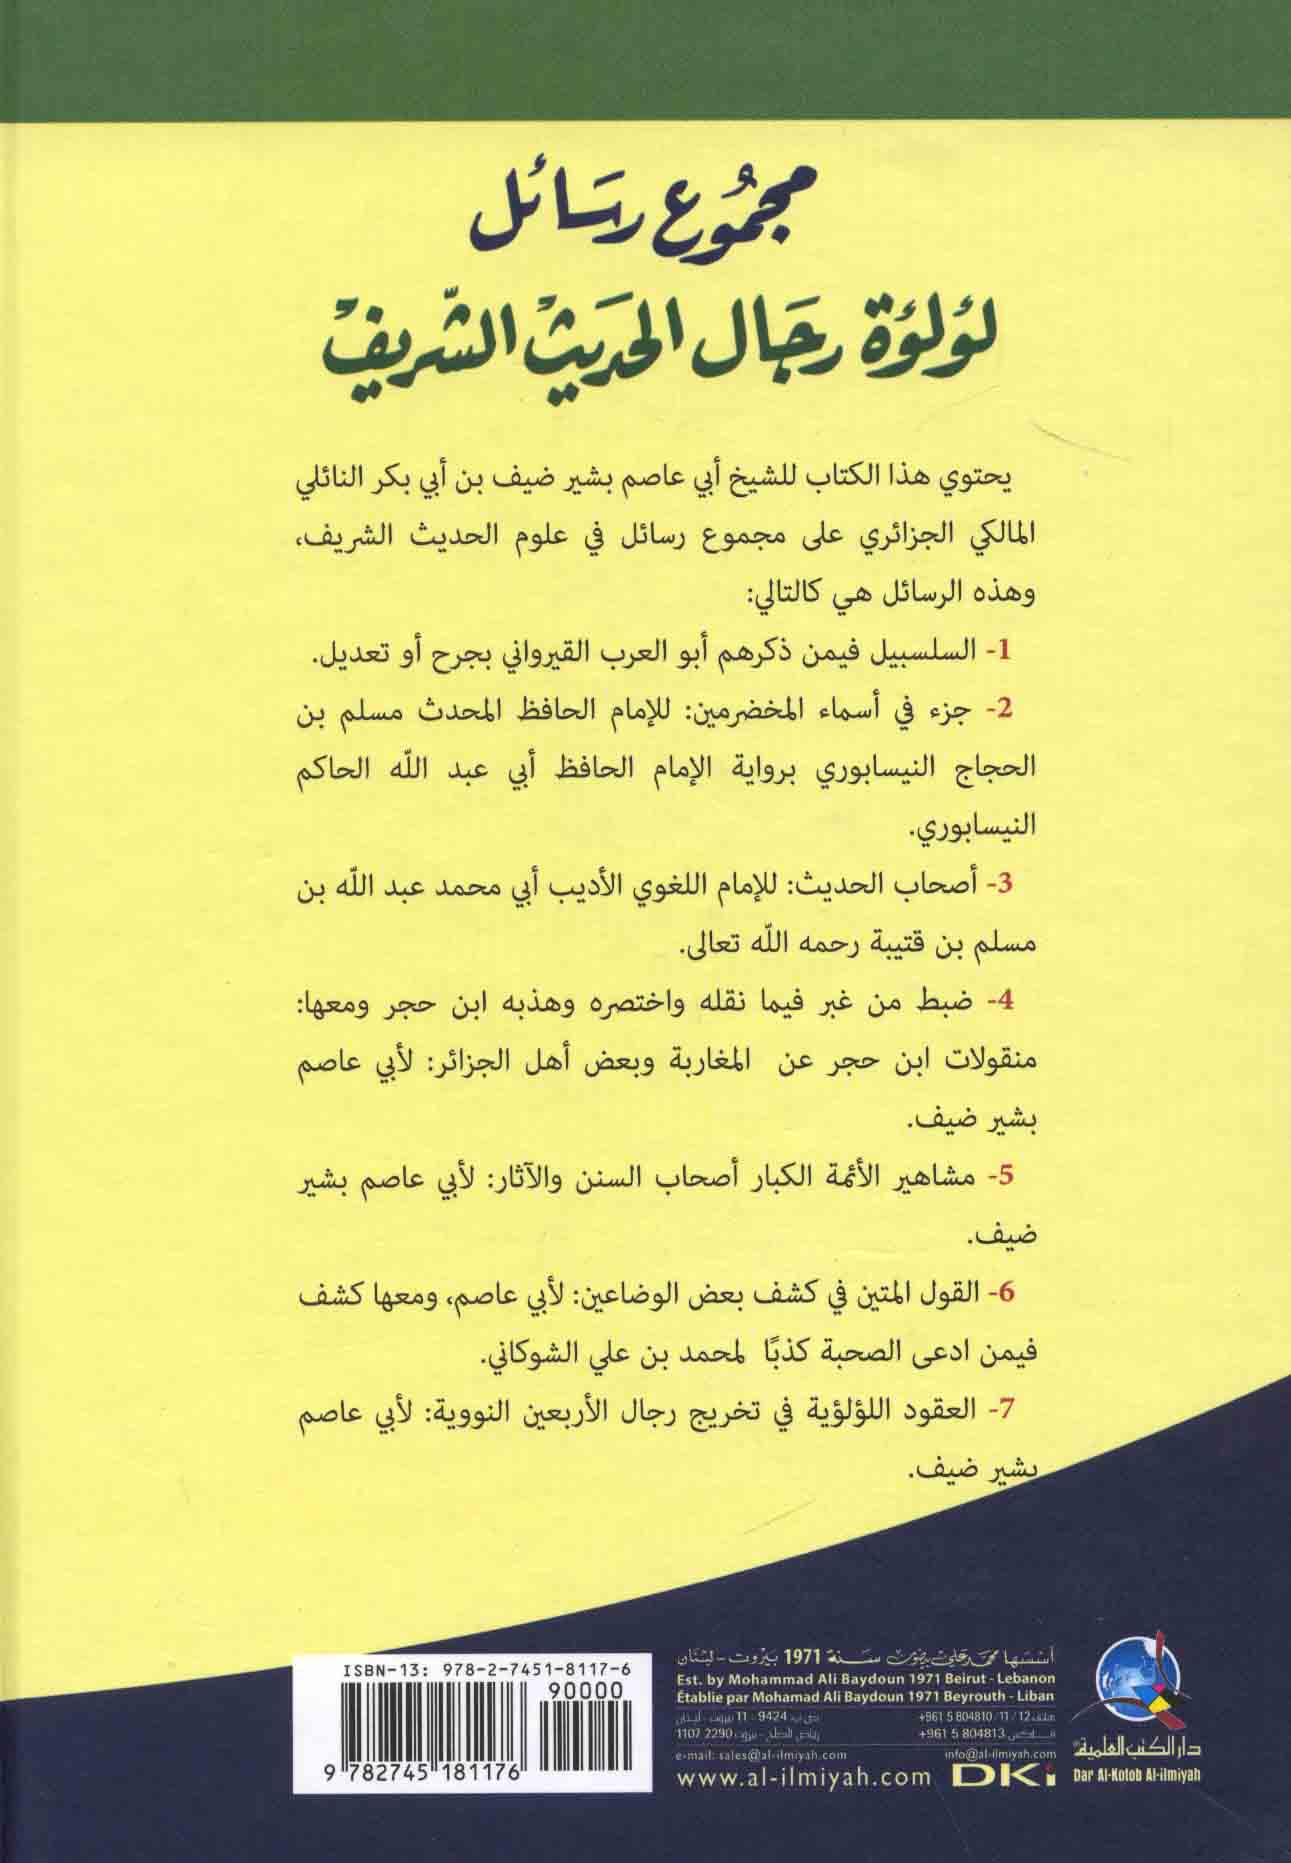 مجموع رسائل
لؤلؤة رجال الحديث الشريف
يحتوي هذا الكتاب للشيخ أبي عاصم بشير ضيف بن أبي بكر النائلي
المالكي الجزائري على مجموع رسائل في علوم الحديث الشريف،
وهذه الرسائل هي كالتالي:
1- السلسبيل فيمن ذكرهم أبو العرب القيرواني بجرح أو تعديل.
2- جزء في أسماء المخضرمين: للإمام الحافظ المحدث مسلم بن
الحجاج النيسابوري برواية الإمام الحافظ أبي عبد الله الحاكم
النيسابوري.
3- أصحاب الحديث: للإمام اللغوي الأديب أبي محمد عبد الله بن
مسلم بن قتيبة رحمه الله تعالى.
4- ضبط من غبر فيما نقله واختصره وهذبه ابن حجر ومعها:
منقولات ابن حجر عن المغاربة وبعض أهل الجزائر: لأبي عاصم
بشير ضيف.
5- مشاهير الأئمة الكبار أصحاب السنن والآثار: لأبي عاصم بشير
ضيف.
6- القول المتين في كشف بعض الوضاعين: لأبي عاصم، ومعها كشف
فيمن ادعى الصحبة كذبًا لمحمد بن علي الشوكاني.
7- العقود اللؤلؤية في تخريج رجال الأربعين النووية: لأبي عاصم
بشير ضيف.
ISBN-13: 978-2-7451-8117-6
90000
9 782745 181176
أسسها محمد علي بيضون سنة 1971 بيروت - لبنان
Est. by Mohammad Ali Baydoun 1971 Beirut - Lebanon
Établie par Mohamad Ali Baydoun 1971 Beyrouth - Liban
هاتف +961 5 804810 / 11 / 12
ص.ب 11 - 9424 بيروت - لبنان
فاكس +961 5 804813
رياض الصلح - بيروت 1107 2290
e-mail: sales@al-ilmiyah.com
info@al-ilmiyah.com
www.al-ilmiyah.com
DKi
دار الكتب العلمية
Dar Al-Kotob Al-ilmiyah